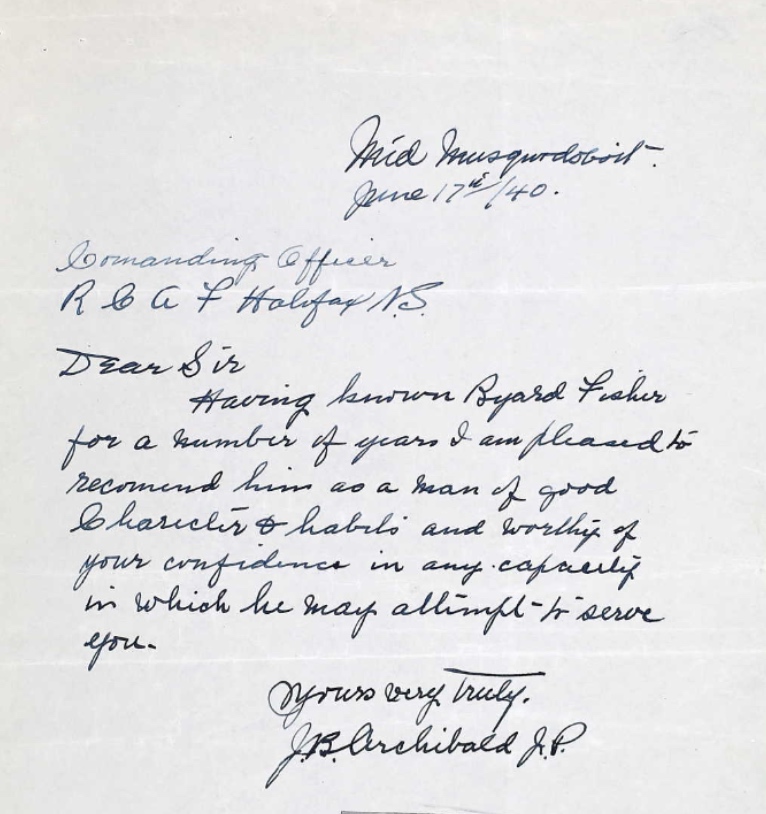 Mid Musquodoboit.
June 17th/40.
Comanding Officer
R C A F Halifax N.S.
Dear Sir
Having known Byard Fisher
for a number of years I am pleased to
recomend him as a man of good
Charicter & habits and worthy of
your confidence in any capacity
in which he may attempt to serve
you.
Yours very Truly.
J.B. Archibald J.P.